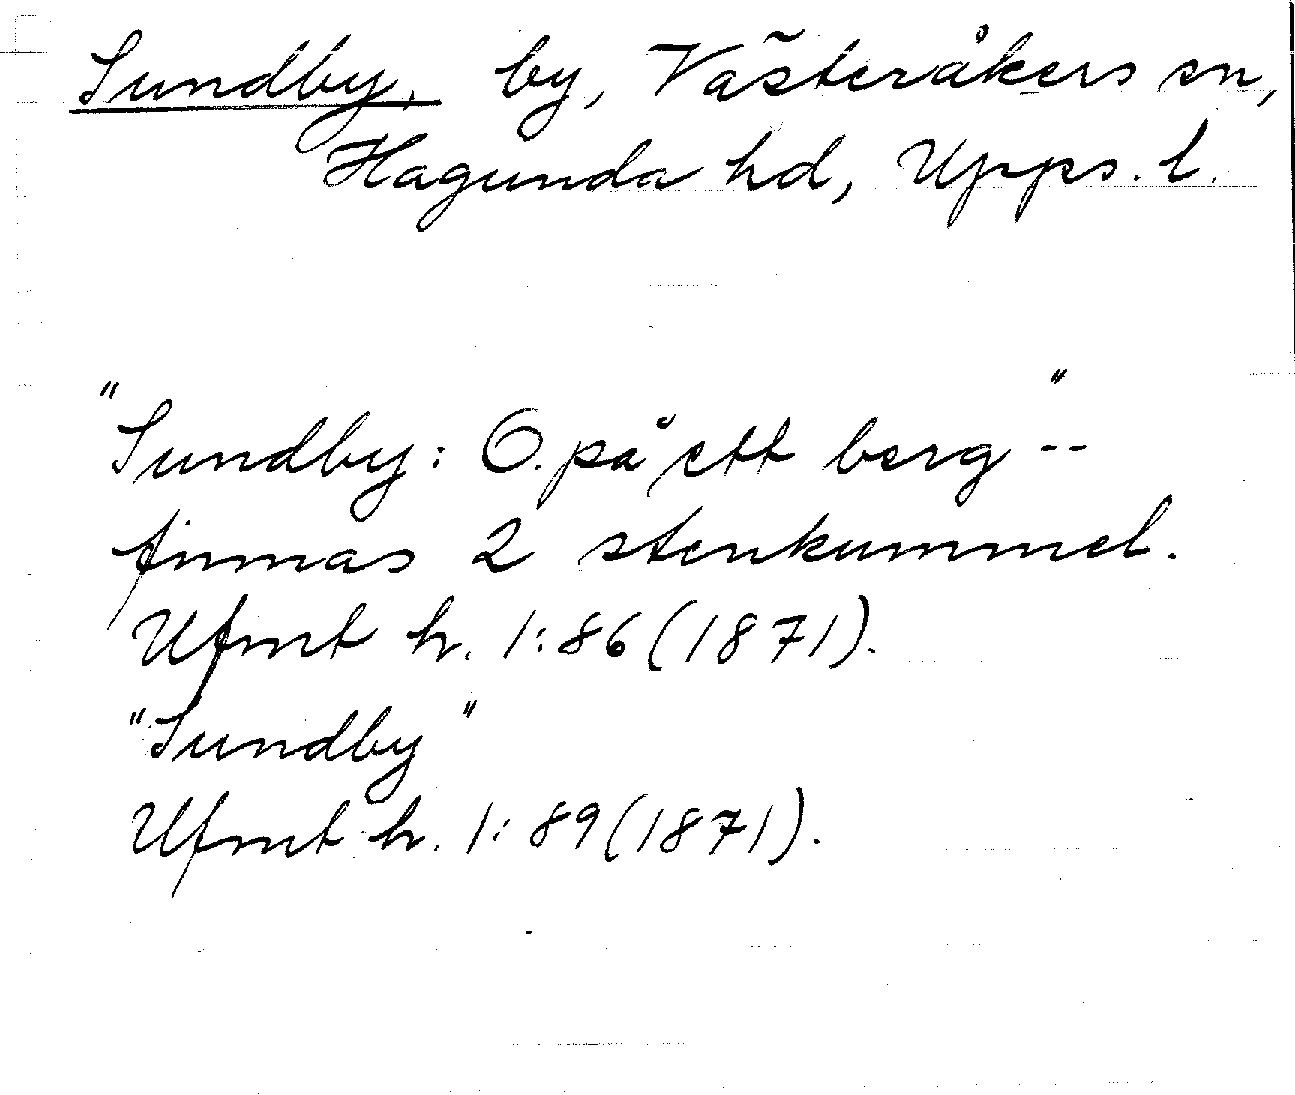 Sundby, by, Västeråkers sn,
Hagunda hd, Upps. l.
"Sundby: Ö. på ett berg" --
finnas 2 stenkummel.
Ufmt h. 1:86 (1871).
"Sundby"
Ufmt h. 1:89 (1871).